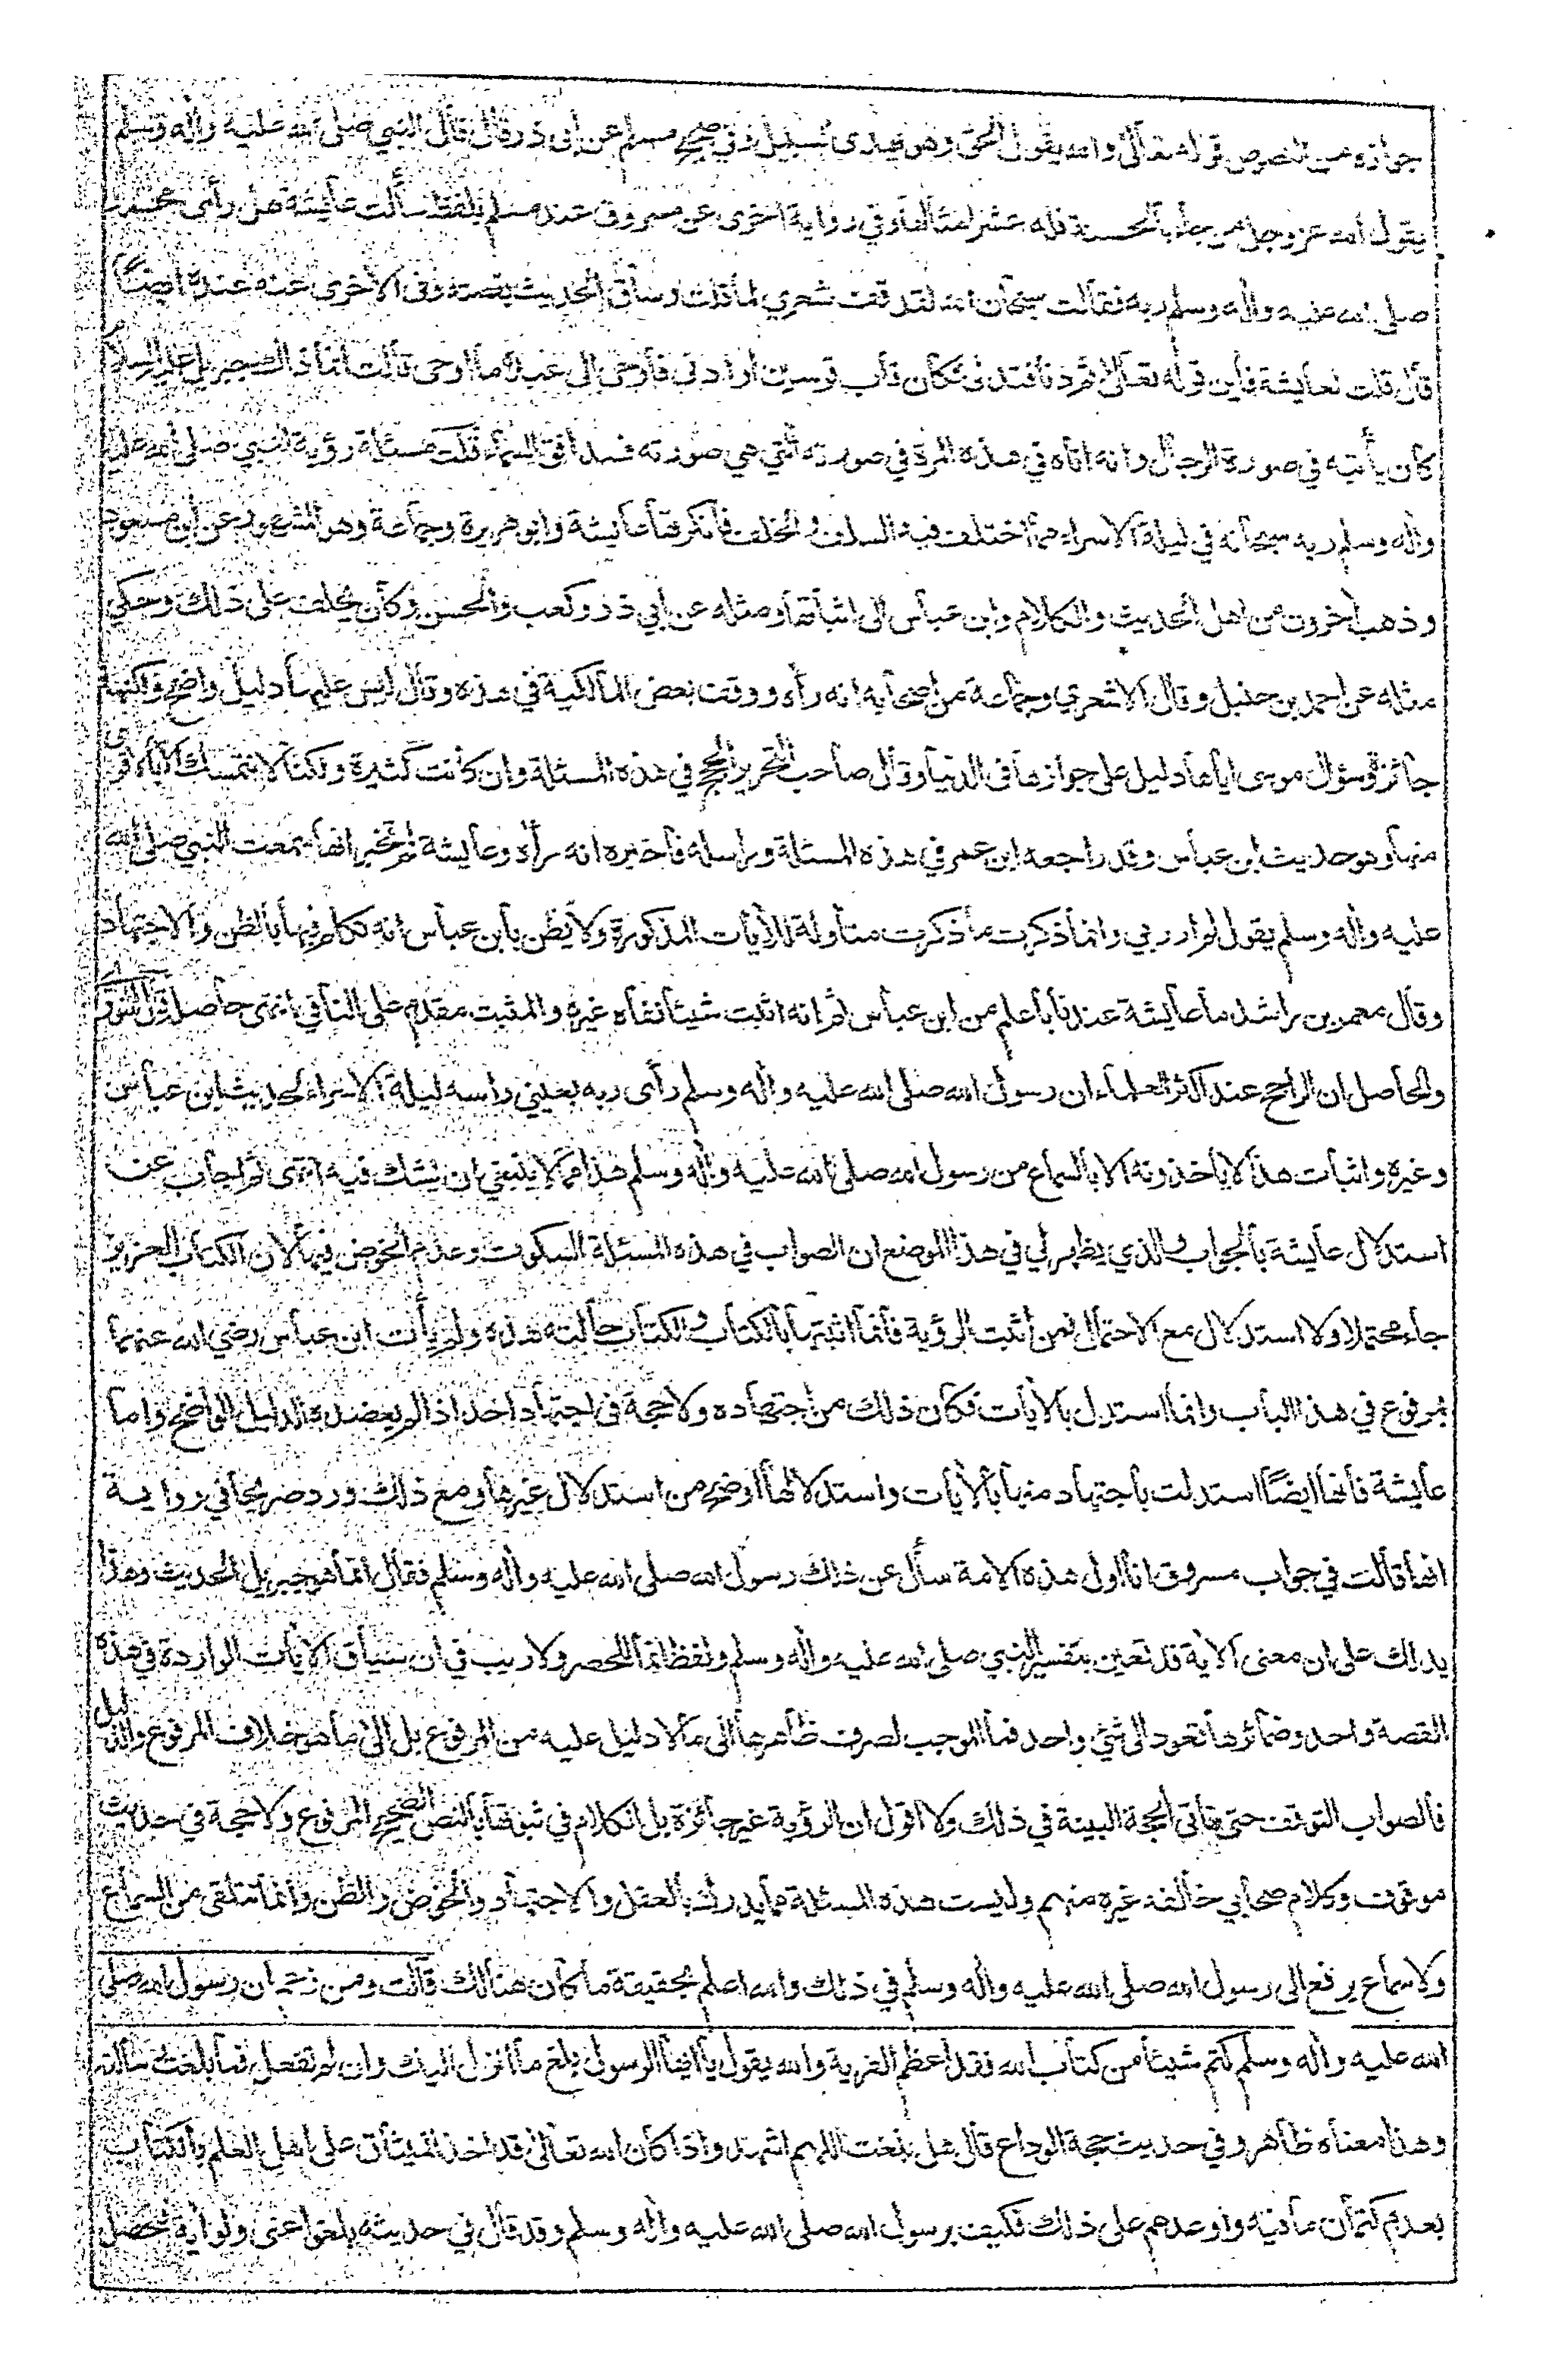 جوازه من النصوص قوله تعالى والله يقول الحق وهو يهدى السبيل وفي صحيح مسلم عن ابى ذر قال قال النبي صلى الله عليه واله وسلم
يقول الله عز وجل من جاء بالحسنة فله عشر امثالها وفي رواية اخرى عن مسروق عند مسلم بلفظ سألت عايشة هل رأى محمد
صلى الله عليه واله وسلم ربه فقالت سبحان الله لقد قف شعري لما قلت وساق الحديث بقصته وفى الاخرى عنه عنده ايضاً
قال قلت لعايشة فاين قوله تعالى ثم دنا فتدلى فكان قاب قوسين او ادنى فأوحى الى عبده ما اوحى قالت انما ذاك جبريل عليه السلام
كان يأتيه في صورة الرجال وانه اتاه في هذه المرة في صورته التي هي صورته فسد افق السماء قلت مسئلة رؤية النبي صلى الله عليه
واله وسلم ربه سبحانه في ليلة الاسراء مما اختلف فيه السلف والخلف فأنكرتها عايشة وابو هريرة وجماعة وهو المشهور عن ابن مسعود
وذهب اخرون من اهل الحديث والكلام وابن عباس الى اثباتها ومثله عن أبي ذر وكعب والحسن وكان يحلف على ذلك وحكي
مثله عن احمد بن حنبل وقال الاشعري وجماعة من اصحابه انه رأه ووقف بعض المالكية في هذه وقال ليس عليها دليل واضح ولكنها
جائزة وسؤال موسى اياها دليل على جوازها في الدنيا وقال صاحب التحرير الحجج في هذه المسئلة وان كانت كثيرة ولكنا لا نتمسك الا بالاقوى
منها وهو حديث ابن عباس وقد راجعه ابن عمر في هذه المسئلة وراسله فأخبره انه رأه وعايشة لم تخبر انها سمعت النبي صلى الله
عليه واله وسلم يقول لم ار ربي وانما ذكرت ما ذكرت متأولة للأيات المذكورة ولا يظن بابن عباس انه تكلم فيها بالظن والاجتهاد
وقال معمر بن راشد ما عايشة عندنا بأعلم من ابن عباس ثم انه اثبت شيئا نفاه غيره والمثبت مقدم على النافي انتهى حاصله قال النووي
والحاصل ان الراجح عند اكثر العلماء ان رسول الله صلى الله عليه واله وسلم رأى ربه بعيني راسه ليلة الاسراء لحديث ابن عباس
وغيره واثبات هذا لا يأخذونه الا بالسماع من رسول الله صلى الله عليه واله وسلم هذا مما لا ينبغي ان يشك فيه انتهى ثم اجاب عن
استدلال عايشة بالجواب والذي يظهر لي في هذا الموضع ان الصواب في هذه المسئلة السكوت وعدم الخوض فيها لان الكتاب العزيز
جاء محتملا ولا استدلال مع الاحتمال فمن اثبت الرؤية فانما اثبتها بالكتاب والكتاب حالته هذه ولم يأت ابن عباس رضي الله عنهما
بمرفوع في هذا الباب وانما استدل بالايات فكان ذلك من اجتهاده ولا حجة في اجتهاد احد اذا لم يعضده الدليل الواضح واما
عايشة فانها ايضاً استدلت بأجتهاد منها بالأيات واستدلالها اوضح من استدلال غيرها ومع ذلك ورد صريحا في رواية
انها قالت في جواب مسروق انا اول هذه الامة سأل عن ذلك رسول الله صلى الله عليه واله وسلم فقال انما هو جبريل الحديث وهذا
يدلك على ان معنى الاية قد تعين بتفسير النبي صلى الله عليه واله وسلم ولفظ انما للحصر ولا ريب في ان سياق الايات الواردة في هذه
القصة واحد وضمائرها تعود الى شئ واحد فما الموجب لصرف ظاهرها الى ما لا دليل عليه من المرفوع بل الى ما هو خلاف المرفوع والدليل
فالصواب التوقف حتى تأتى الحجة البينة في ذلك ولا اقول ان الرؤية غير جائزة بل الكلام في ثبوتها بالنص الصحيح المرفوع ولا حجة في حديث
موقوف وكلام صحابي خالفه غيره منهم وليست هذه المسئلة مما يدرك بالعقل والاجتهاد والخوض والظن وانما تتلقى من السماع
ولا سماع يرفع الى رسول الله صلى الله عليه واله وسلم في ذلك والله اعلم بحقيقة ما كان هنالك قالت ومن زعم ان رسول الله صلى
الله عليه واله وسلم كتم شيئا من كتاب الله فقد اعظم الفرية والله يقول يا ايها الرسول بلغ ما انزل اليك وان لم تفعل فما بلغت رسالته
وهذا معناه ظاهر وفي حديث حجة الوداع قال هل بلغت اللهم اشهد واذا كان الله تعالى قد اخذ الميثاق على اهل العلم والكتاب
بعدم كتمان ما فيه واوعدهم على ذلك فكيف برسول الله صلى الله عليه واله وسلم وقد قال في حديثه بلغوا عنى ولو اية فحصل